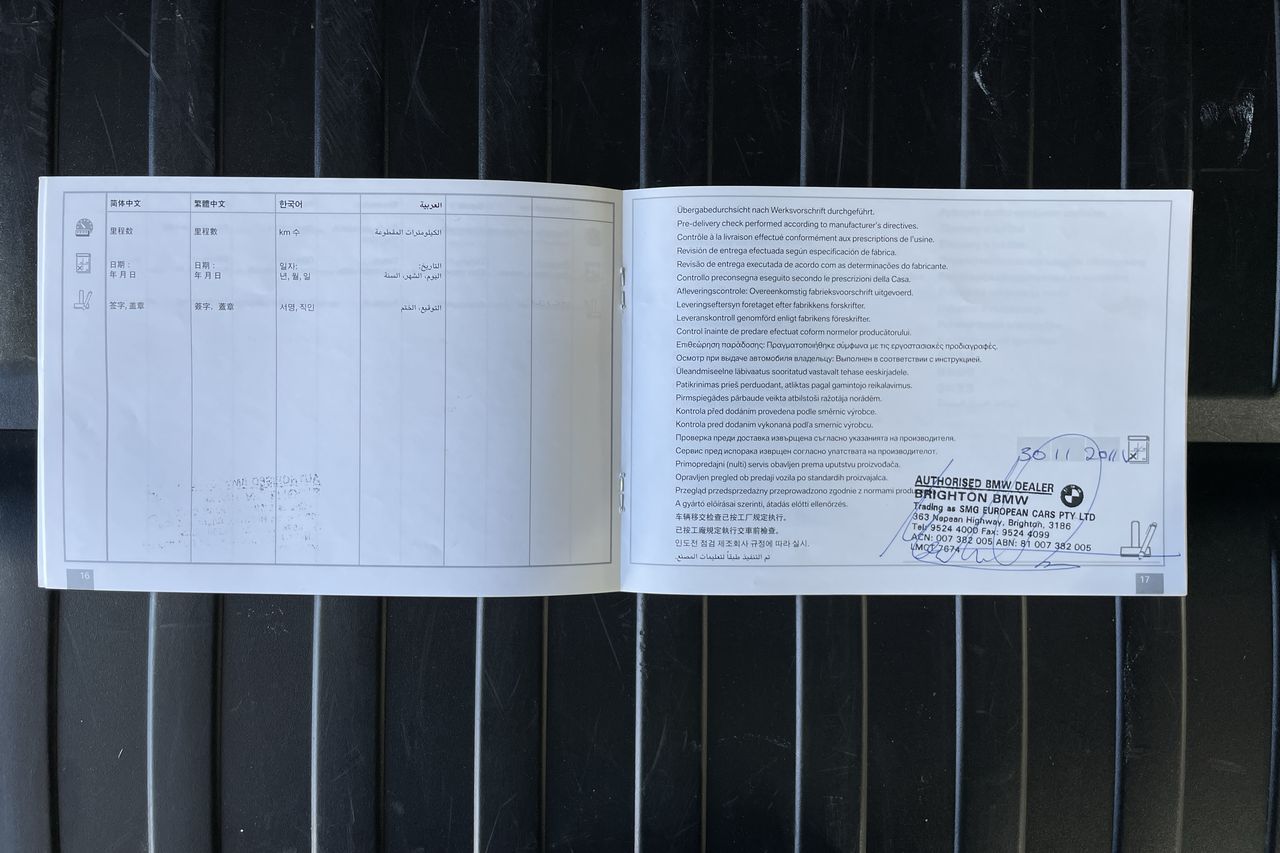 简体中文 繁體中文 한국어 العربية
里程数 里程數 km 수 الكيلومترات المقطوعة
日期： 日期： 일자: التاريخ:
年 月 日 年 月 日 년, 월, 일 اليوم، الشهر، السنة
签字, 盖章 簽字，蓋章 서명, 직인 التوقيع، الختم
16
Übergabedurchsicht nach Werksvorschrift durchgeführt.
Pre-delivery check performed according to manufacturer's directives.
Contrôle à la livraison effectué conformément aux prescriptions de l'usine.
Revisión de entrega efectuada según especificación de fábrica.
Revisão de entrega executada de acordo com as determinações do fabricante.
Controllo preconsegna eseguito secondo le prescrizioni della Casa.
Afleveringscontrole: Overeenkomstig fabrieksvoorschrift uitgevoerd.
Leveringseftersyn foretaget efter fabrikkens forskrifter.
Leveranskontroll genomförd enligt fabrikens föreskrifter.
Control înainte de predare efectuat coform normelor producătorului.
Επιθεώρηση παράδοσης: Πραγματοποιήθηκε σύμφωνα με τις εργοστασιακές προδιαγραφές.
Осмотр при выдаче автомобиля владельцу: Выполнен в соответствии с инструкцией.
Üleandmiseelne läbivaatus sooritatud vastavalt tehase eeskirjadele.
Patikrinimas prieš perduodant, atliktas pagal gamintojo reikalavimus.
Pirmspiegādes pārbaude veikta atbilstoši ražotāja norādēm.
Kontrola před dodáním provedena podle směrnic výrobce.
Kontrola pred dodaním vykonaná podľa smerníc výrobcu.
Проверка преди доставка извършена съгласно указанията на производителя.
Сервис пред испорака извршен согласно упатствата на производителот.
Primopredajni (nulti) servis obavljen prema uputstvu proizvođača.
Opravljen pregled ob predaji vozila po standardih proizvajalca.
Przegląd przedsprzedażny przeprowadzono zgodnie z normami
A gyártó előírásai szerinti, átadás előtti ellenőrzés.
车辆移交检查已按工厂规定执行。
已按工廠規定執行交車前檢查。
인도전 점검 제조회사 규정에 따라 실시.
تم التنفيذ طبقاً لتعليمات المصنع.
30 11 2011
AUTHORISED BMW DEALER
BRIGHTON BMW
Trading as SMG EUROPEAN CARS PTY LTD
363 Nepean Highway, Brighton, 3186
Tel: 9524 4000 Fax: 9524 4099
ACN: 007 382 005 ABN: 81 007 382 005
LMCT 7674
17